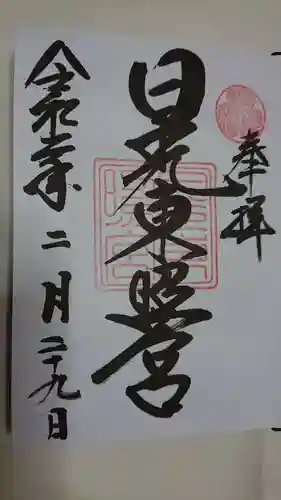 奉拝
日光東照宮
令和二年二月二十九日